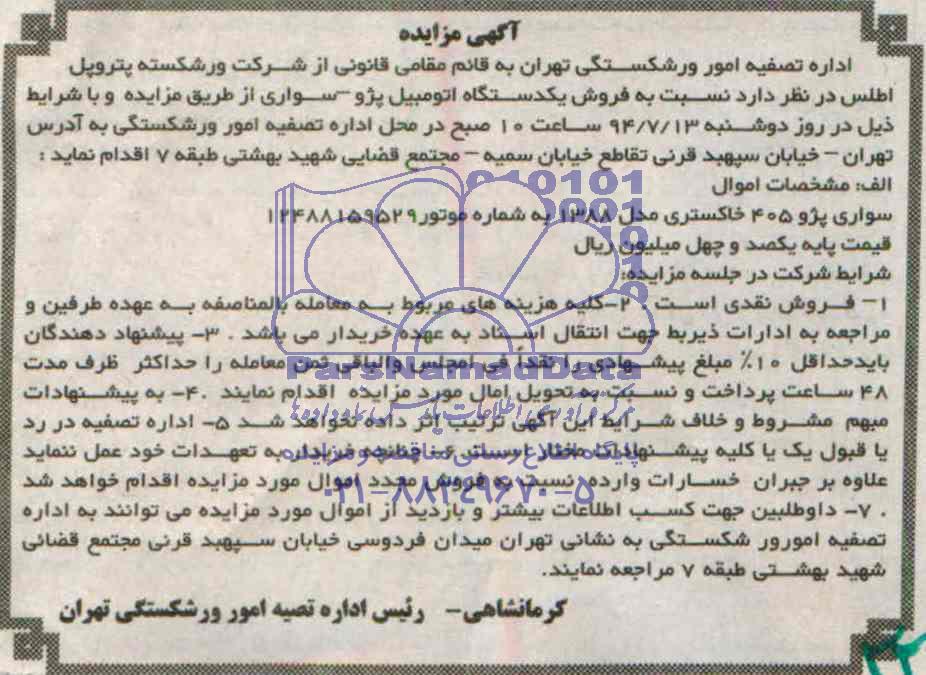 آگهی مزایده
اداره تصفیه امور ورشکستگی تهران به قائم مقامی قانونی از شرکت ورشکسته پتروپل
اطلس در نظر دارد نسبت به فروش یکدستگاه اتومبیل پژو –سواری از طریق مزایده و با شرایط
ذیل در روز دوشنبه ۹۴/۷/۱۳ ساعت ۱۰ صبح در محل اداره تصفیه امور ورشکستگی به آدرس
تهران – خیابان سپهبد قرنی تقاطع خیابان سمیه – مجتمع قضایی شهید بهشتی طبقه ۷ اقدام نماید :
الف: مشخصات اموال
سواری پژو ۴۰۵ خاکستری مدل ۱۳۸۸ به شماره موتور ۱۲۴۸۸۱۵۹۵۲۹
قیمت پایه یکصد و چهل میلیون ریال
شرایط شرکت در جلسه مزایده:
۱– فروش نقدی است . ۲–کلیه هزینه های مربوط به معامله بالمناصفه به عهده طرفین و
مراجعه به ادارات ذیربط جهت انتقال اسناد به عهده خریدار می باشد . ۳– پیشنهاد دهندگان
بایدحداقل ۱۰٪ مبلغ پیشنهادی را نقداً فی المجلس والباقی ثمن معامله را حداکثر ظرف مدت
۴۸ ساعت پرداخت و نسبت به تحویل امال مورد مزایده اقدام نمایند .۴– به پیشنهادات
مبهم مشروط و خلاف شرایط این آگهی ترتیب اثر داده نخواهد شد ۵– اداره تصفیه در رد
یا قبول یک یا کلیه پیشنهادات مختار است ۶– چنانچه خریدار به تعهدات خود عمل ننماید
علاوه بر جبران خسارات وارده نسبت به فروش مجدد اموال مورد مزایده اقدام خواهد شد
. ۷– داوطلبین جهت کسب اطلاعات بیشتر و بازدید از اموال مورد مزایده می توانند به اداره
تصفیه امورور شکستگی به نشانی تهران میدان فردوسی خیابان سپهبد قرنی مجتمع قضائی
شهید بهشتی طبقه ۷ مراجعه نمایند.
کرمانشاهی– رئیس اداره تصیه امور ورشکستگی تهران
ParsNamadData
پایگاه اطلاع رسانی مناقصه و مزایده
۰۲۱-۸۸۳۴۹۶۷۰-۵